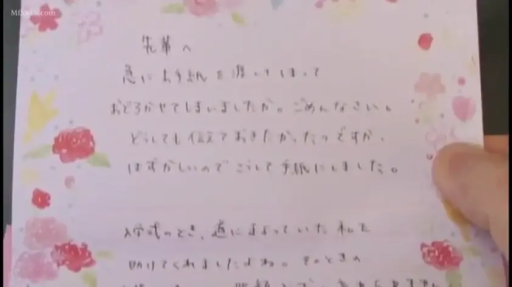 先輩へ
急にお手紙を渡してしまって
おどろかせてしまいましたか。ごめんなさい。
どうしても伝えておきたかったのですが、
はずかしいのでこうして手紙にしました。
入学式のとき、道にまよっていた私を
助けてくれましたよね。そのときの